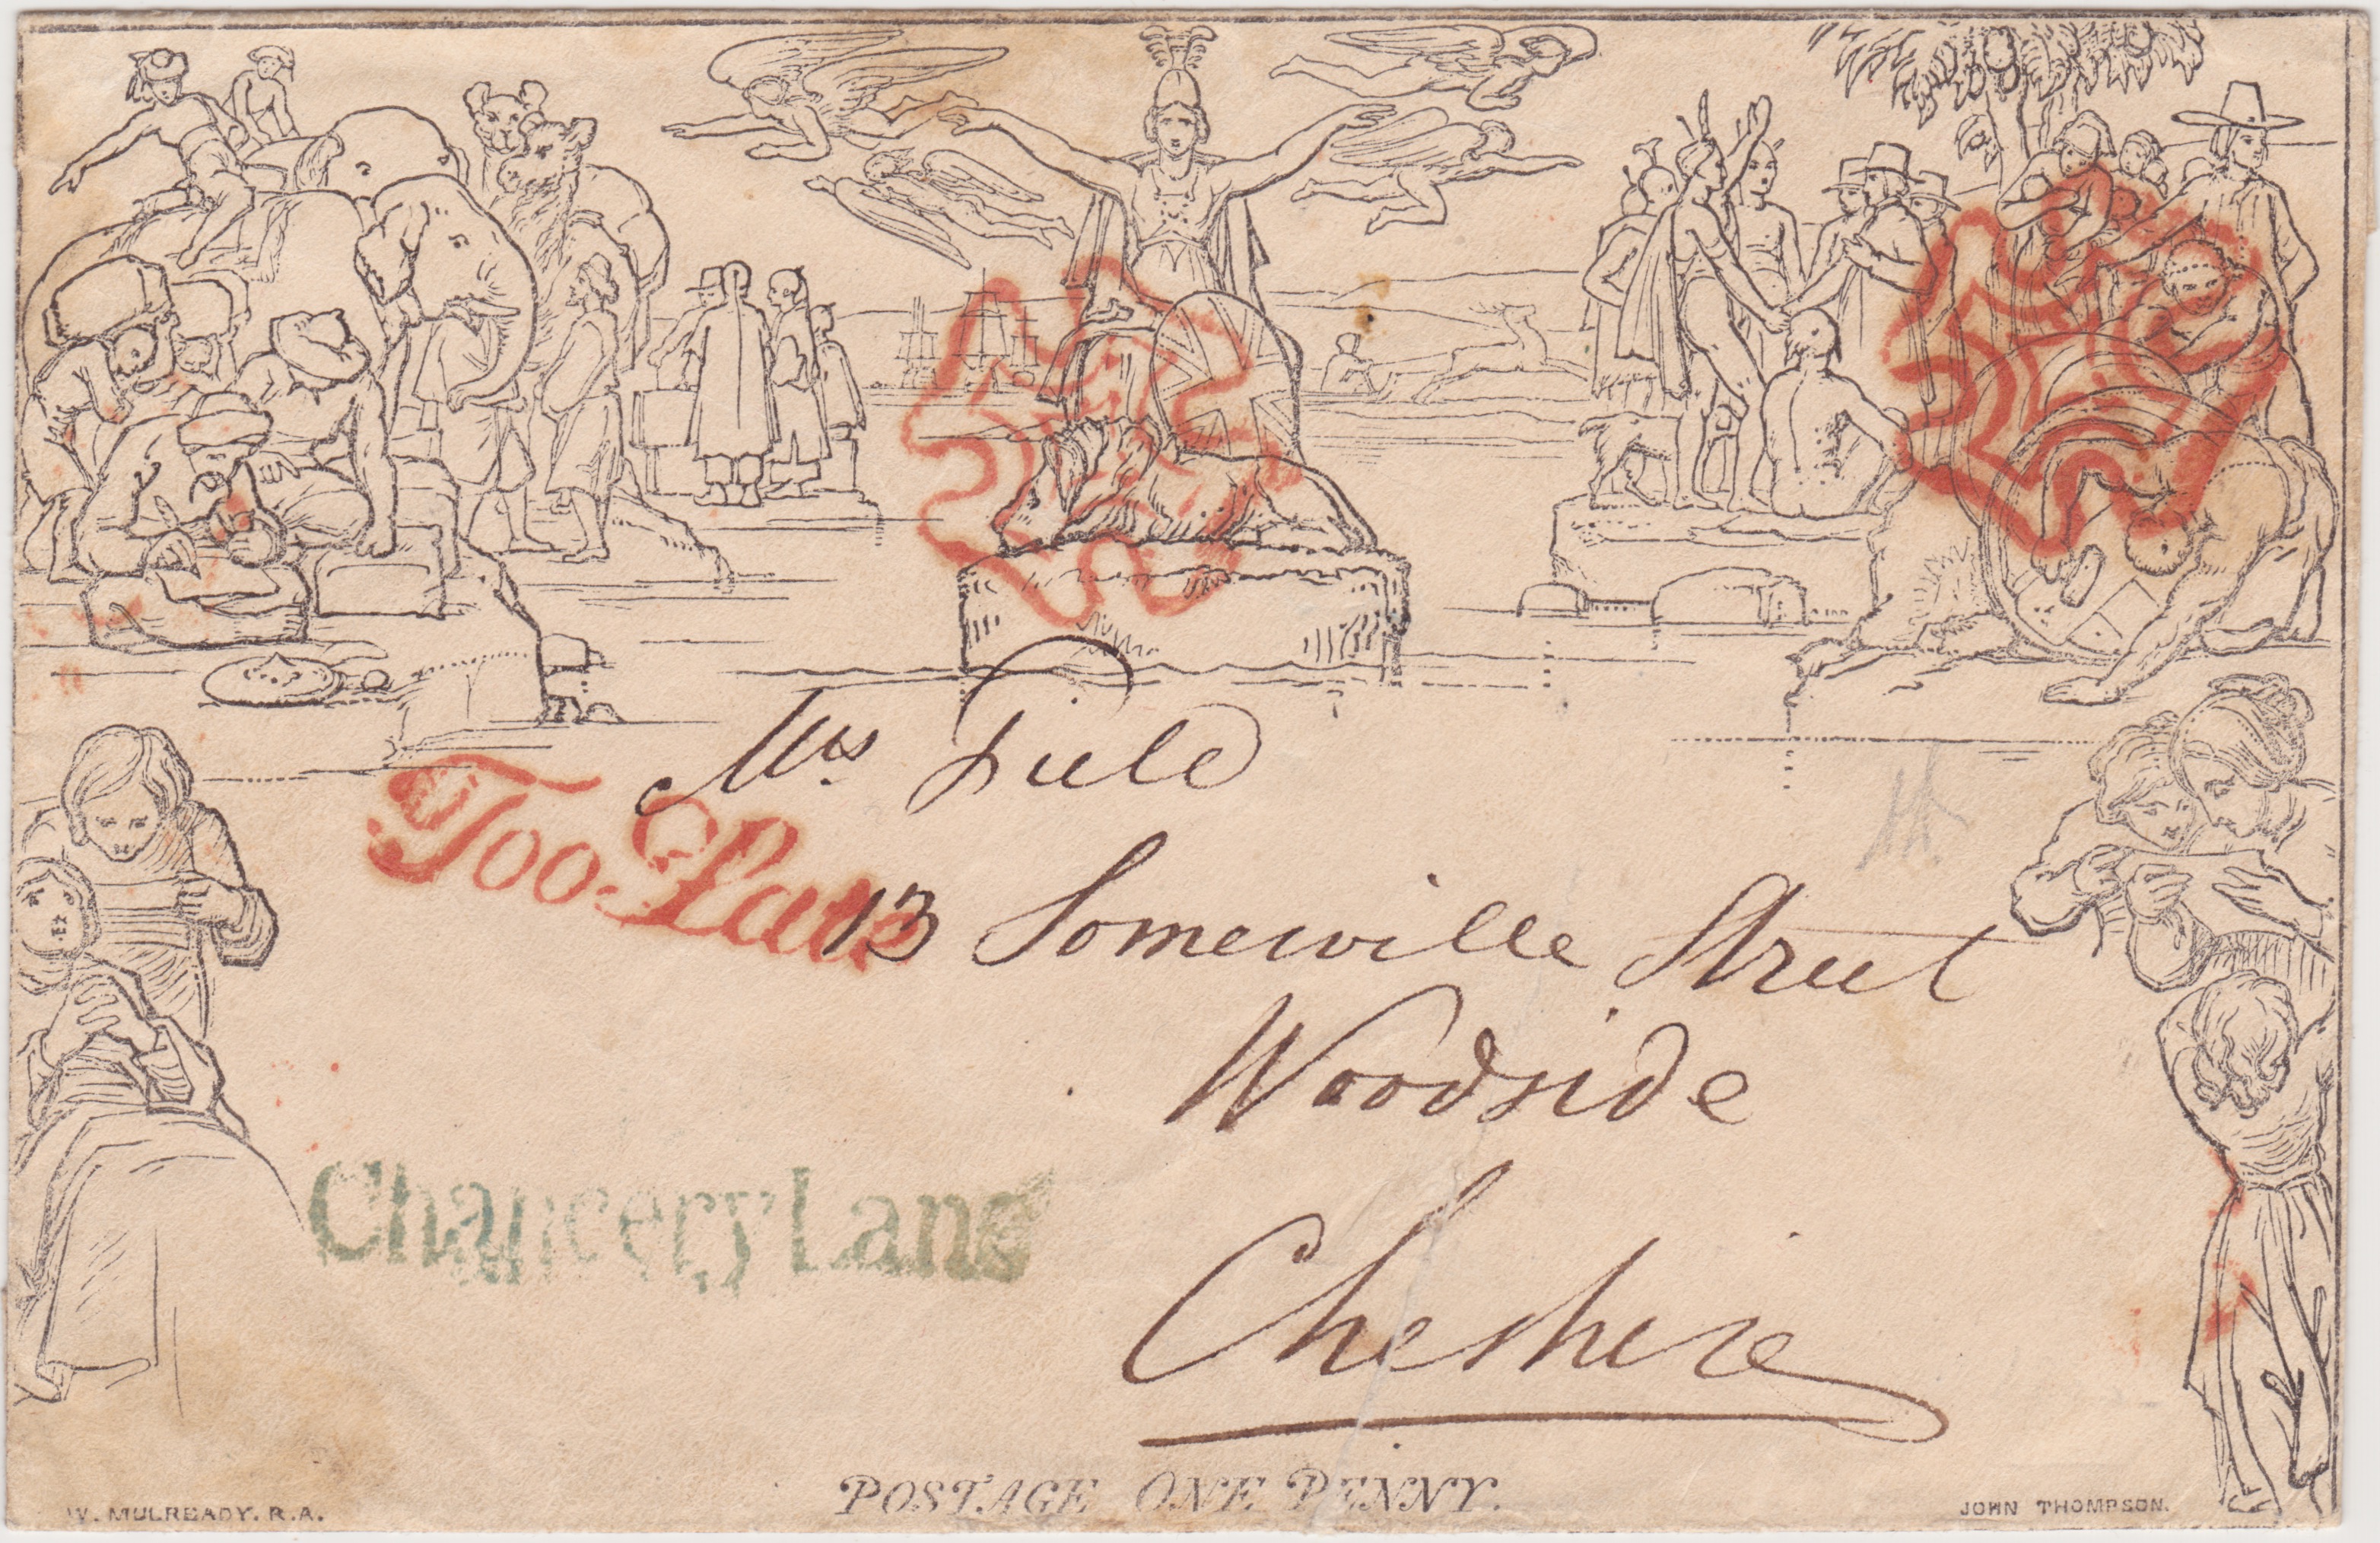 Mrs Field
Too Late
13 Somerville Street
Woodside
Chancery Lane
Cheshire
POSTAGE ONE PENNY.
W. MULREADY. R.A.
JOHN THOMPSON.